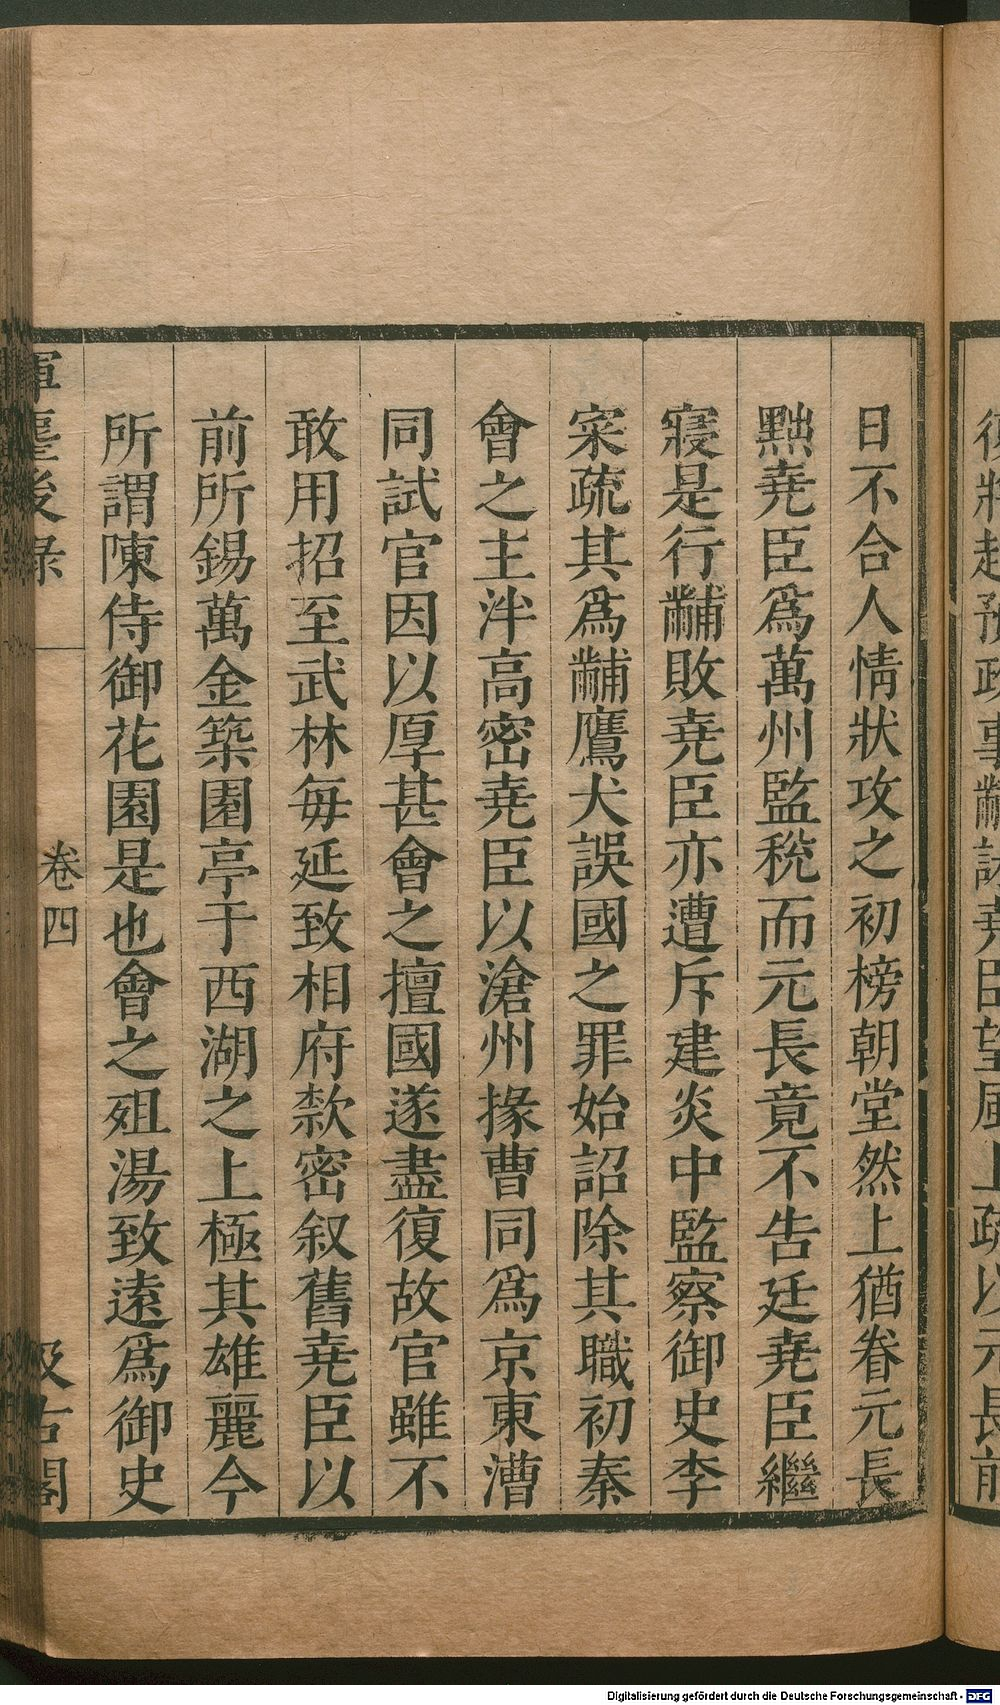 日不合人情狀攻之初榜朝堂然上猶眷元長
黜堯臣爲萬州監稅而元長竟不告廷堯臣繼
寢是行黼敗堯臣亦遭斥建炎中監察御史李
寀疏其爲黼鷹犬誤國之罪始詔除其職初秦
會之主泮高密堯臣以滄州掾曹同爲京東漕
同試官因以厚甚會之擅國遂盡復故官雖不
敢用招至武林每延致相府欵密叙舊堯臣以
前所錫萬金築園亭于西湖之上極其雄麗今
所謂陳侍御花園是也會之殂湯致遠爲御史
揮麈後錄
卷四
汲古閣
Digitalisierung gefördert durch die Deutsche Forschungsgemeinschaft - DFG